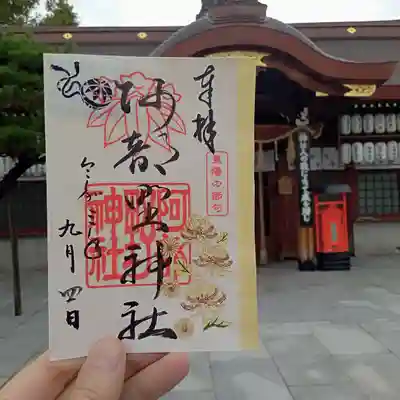 奉拝
重陽の節句
阿部野神社
阿部野神社
令和三年
九月四日